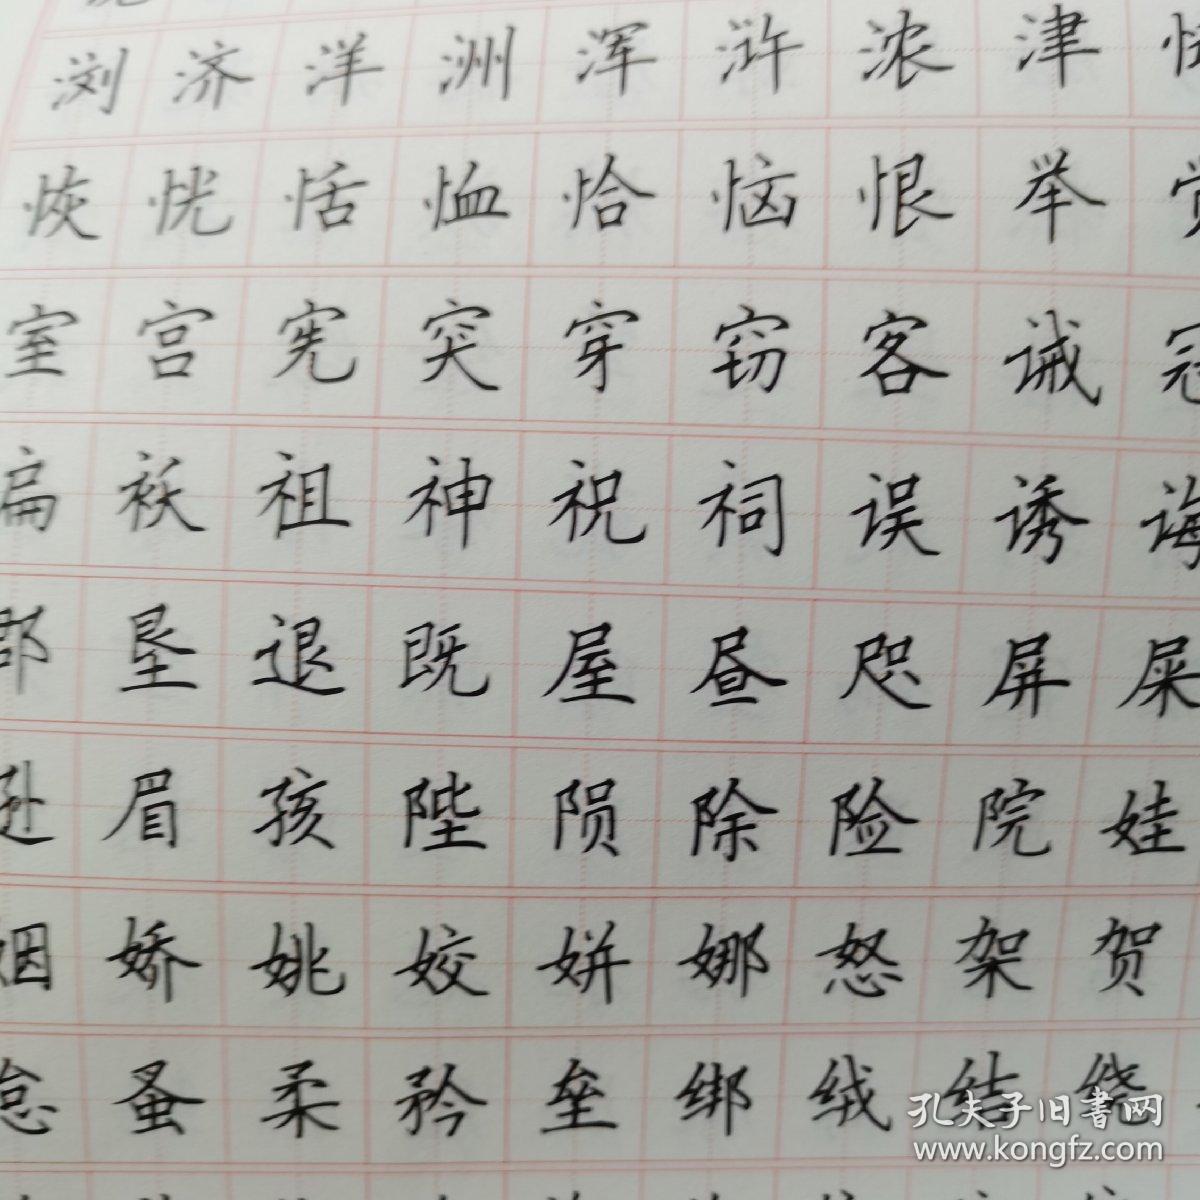 浏济洋洲浑浒浓津
恢恍恬恤恰恼恨举觉
室宫宪突穿窃客诫冠
扁袄祖神祝祠误诱诲
郡垦退既屋昼咫屏屎
逊眉孩陛陨除险院娃
姻娇姚姣姘娜怒架贺
怠蚤柔矜垒绑绒结绕
孔夫子旧書网
www.kongfz.com